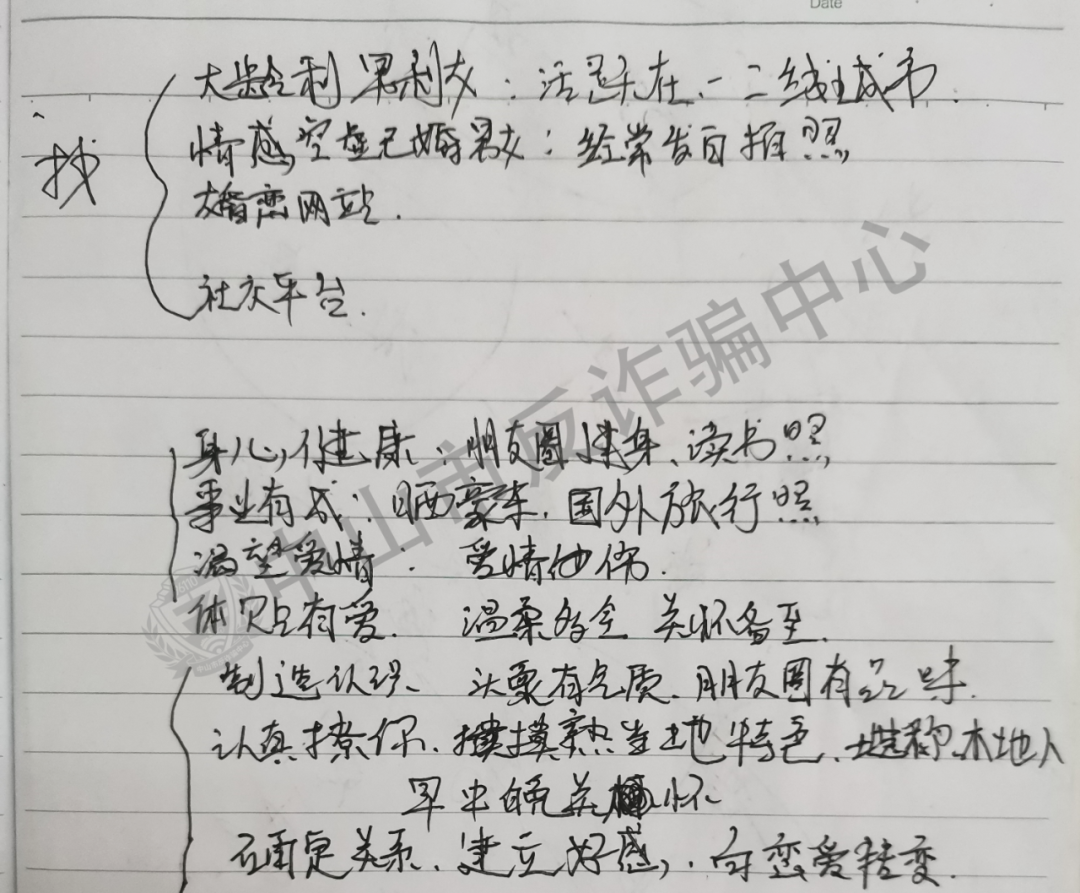 Date
找
大龄剩男剩女：活跃在一二线城市.
情感空虚已婚男女：经常发自拍照
婚恋网站.
社交平台.
身心健康：朋友圈健身、读书照
事业有成：晒豪车.国外旅行照
渴望爱情： 爱情物语.
体贴有爱. 温柔多金 关怀备至.
制造认识、 头像有气质.朋友圈有品味.
认真撩你.摸熟当地特色.谎称本地人
早中晚关怀
确定关系.建立好感,.向恋爱转变.
中山市反诈骗中心